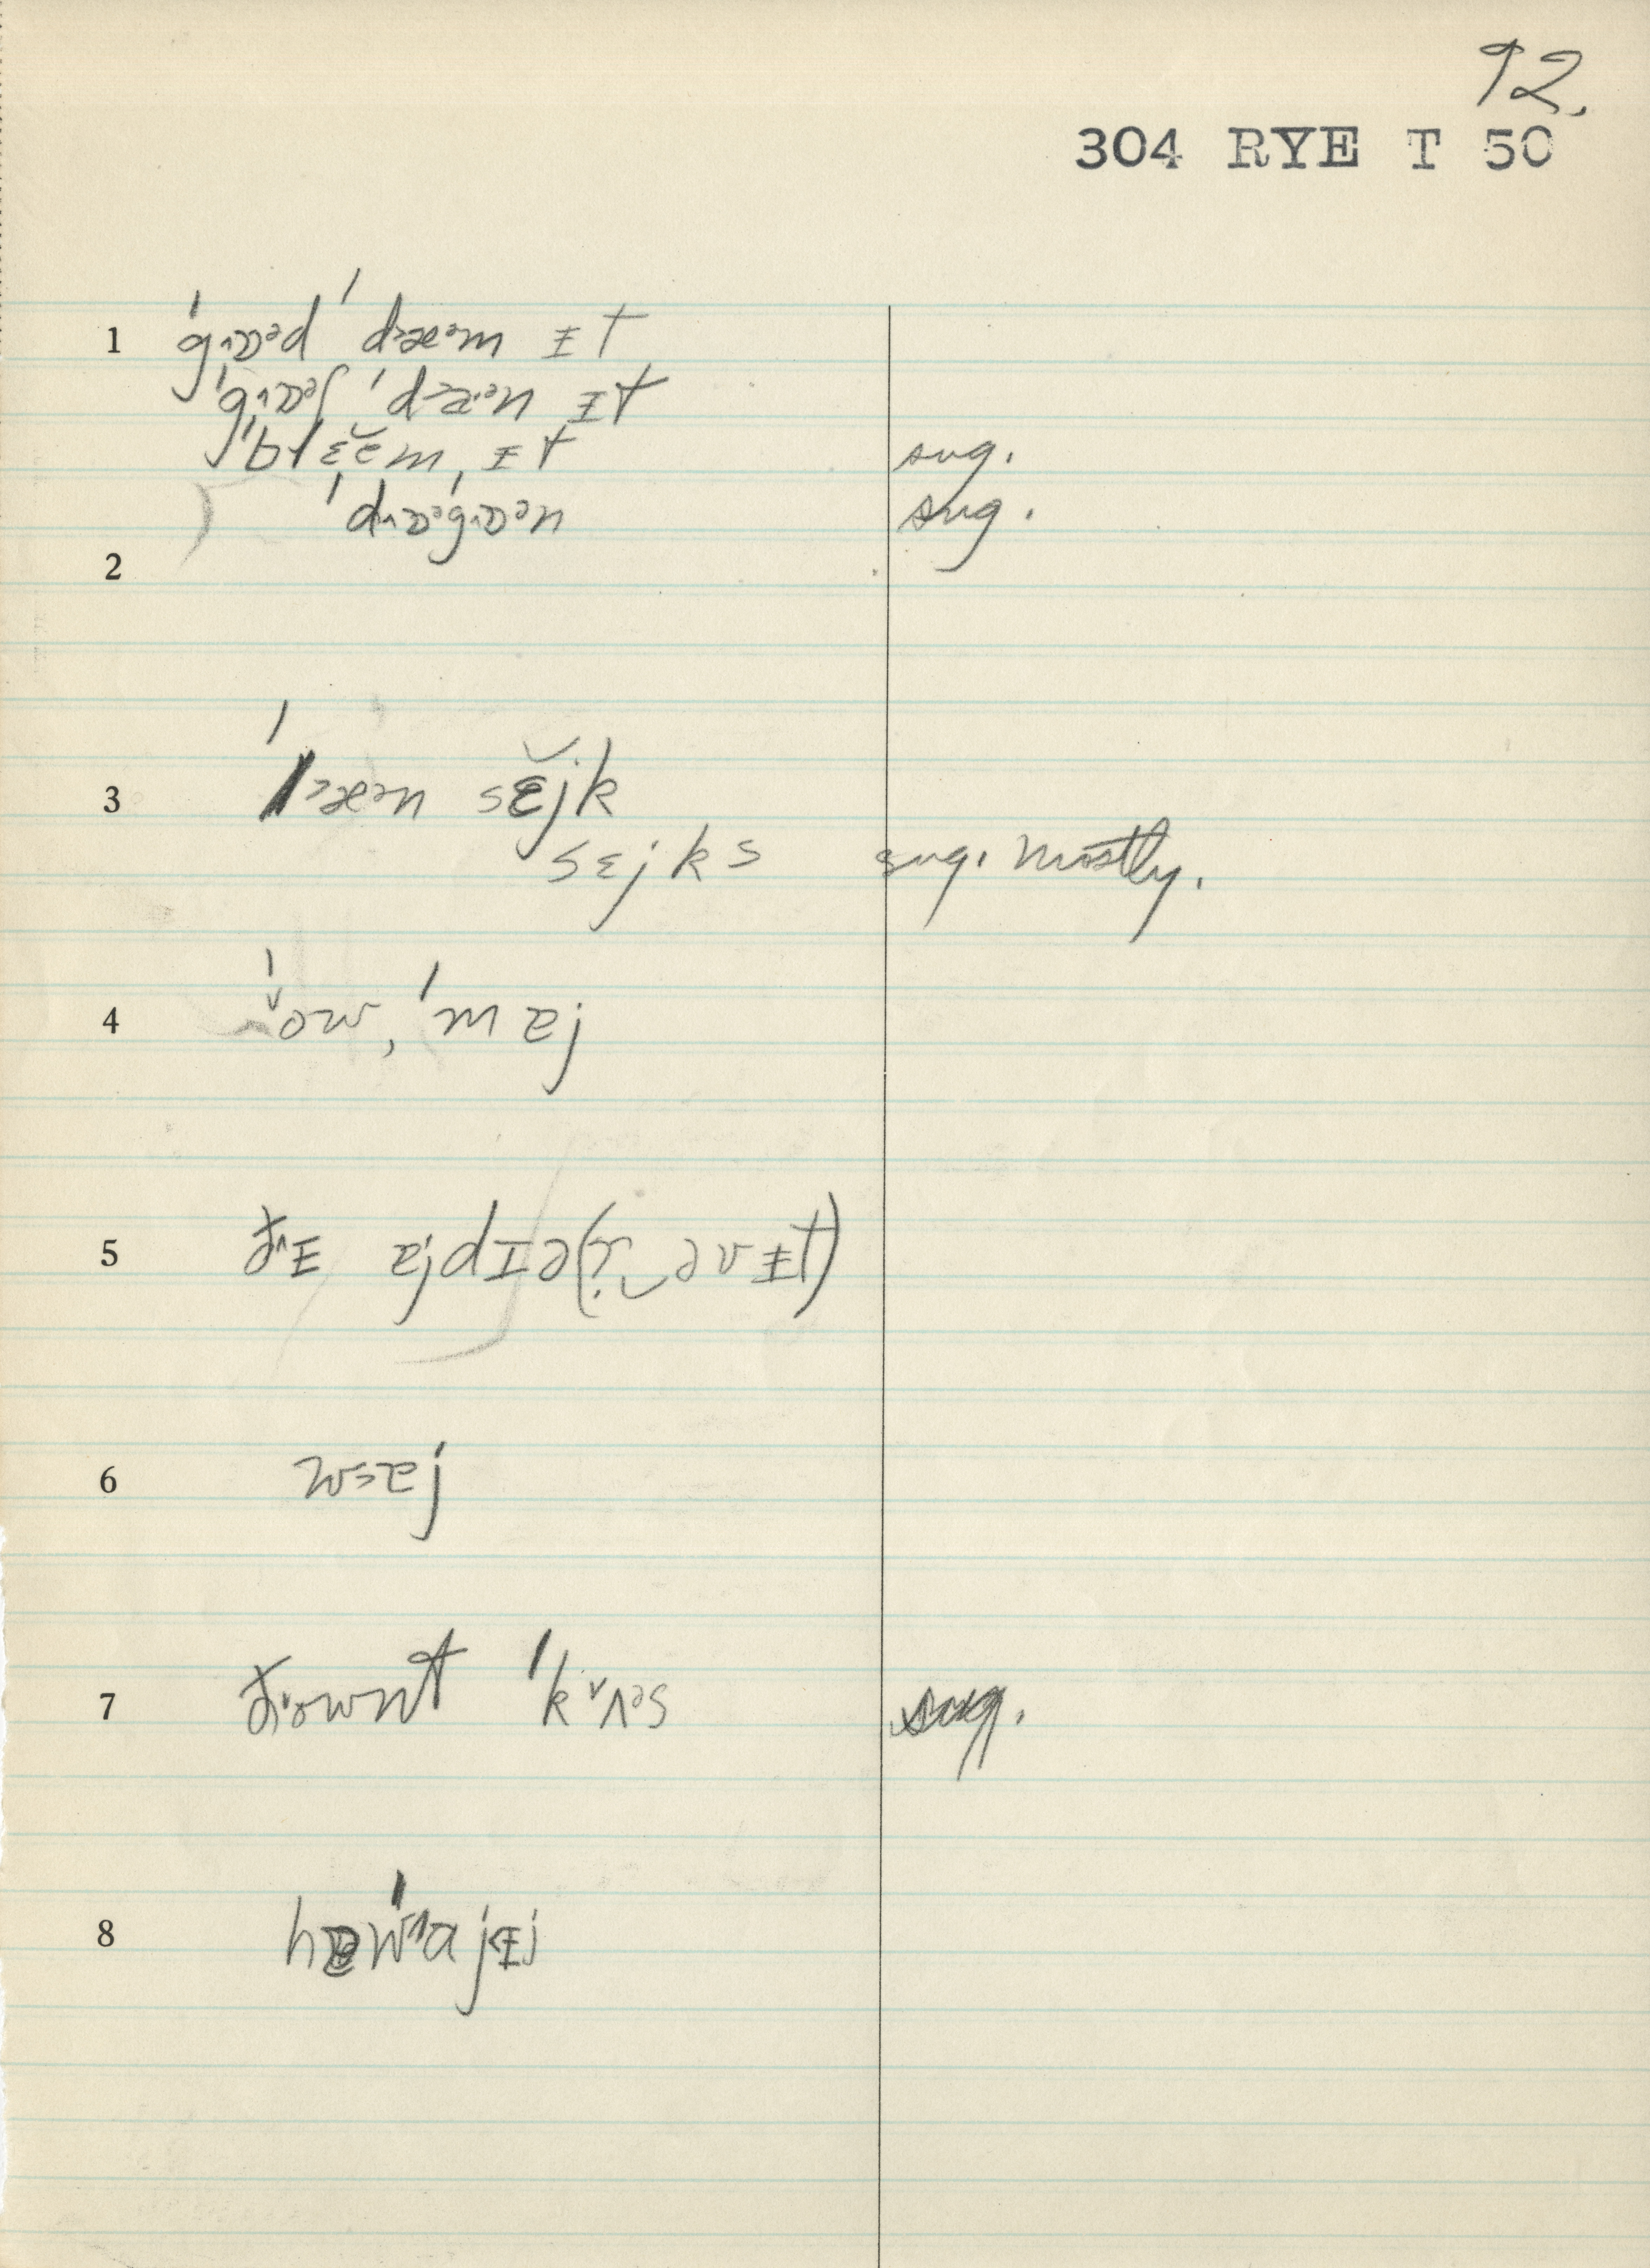 92.
304 RYE T 50
1 ˈg˄ɒᵊd ˈd˃æᵊm ɪt
ˈg˄ɒᵊʃ ˈd˃æᵊn ɪt
ˈblɛ̆ĕm ɪt sug.
ˈd˄ɒᵊˈg˄ɒᵊn sug.
2
3 ˈl˃æᵊn sɛ̆jk
sɛjks sug. mostly.
4 ˈ˅ow, ˈmɐj
5 ð˄ɪ ɐjdɪə(r̤‿əvɪt)
6 w˃ɐj
7 d˅ownt ˈk˅ʌᵊs sug.
8